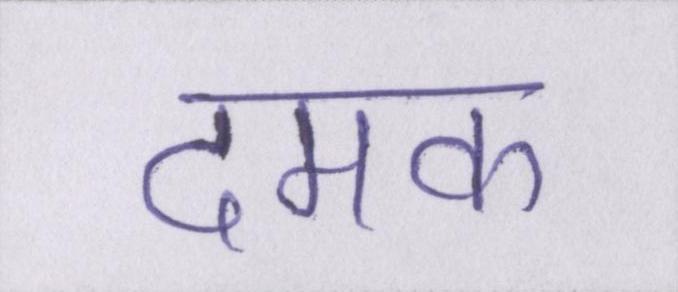 दमक